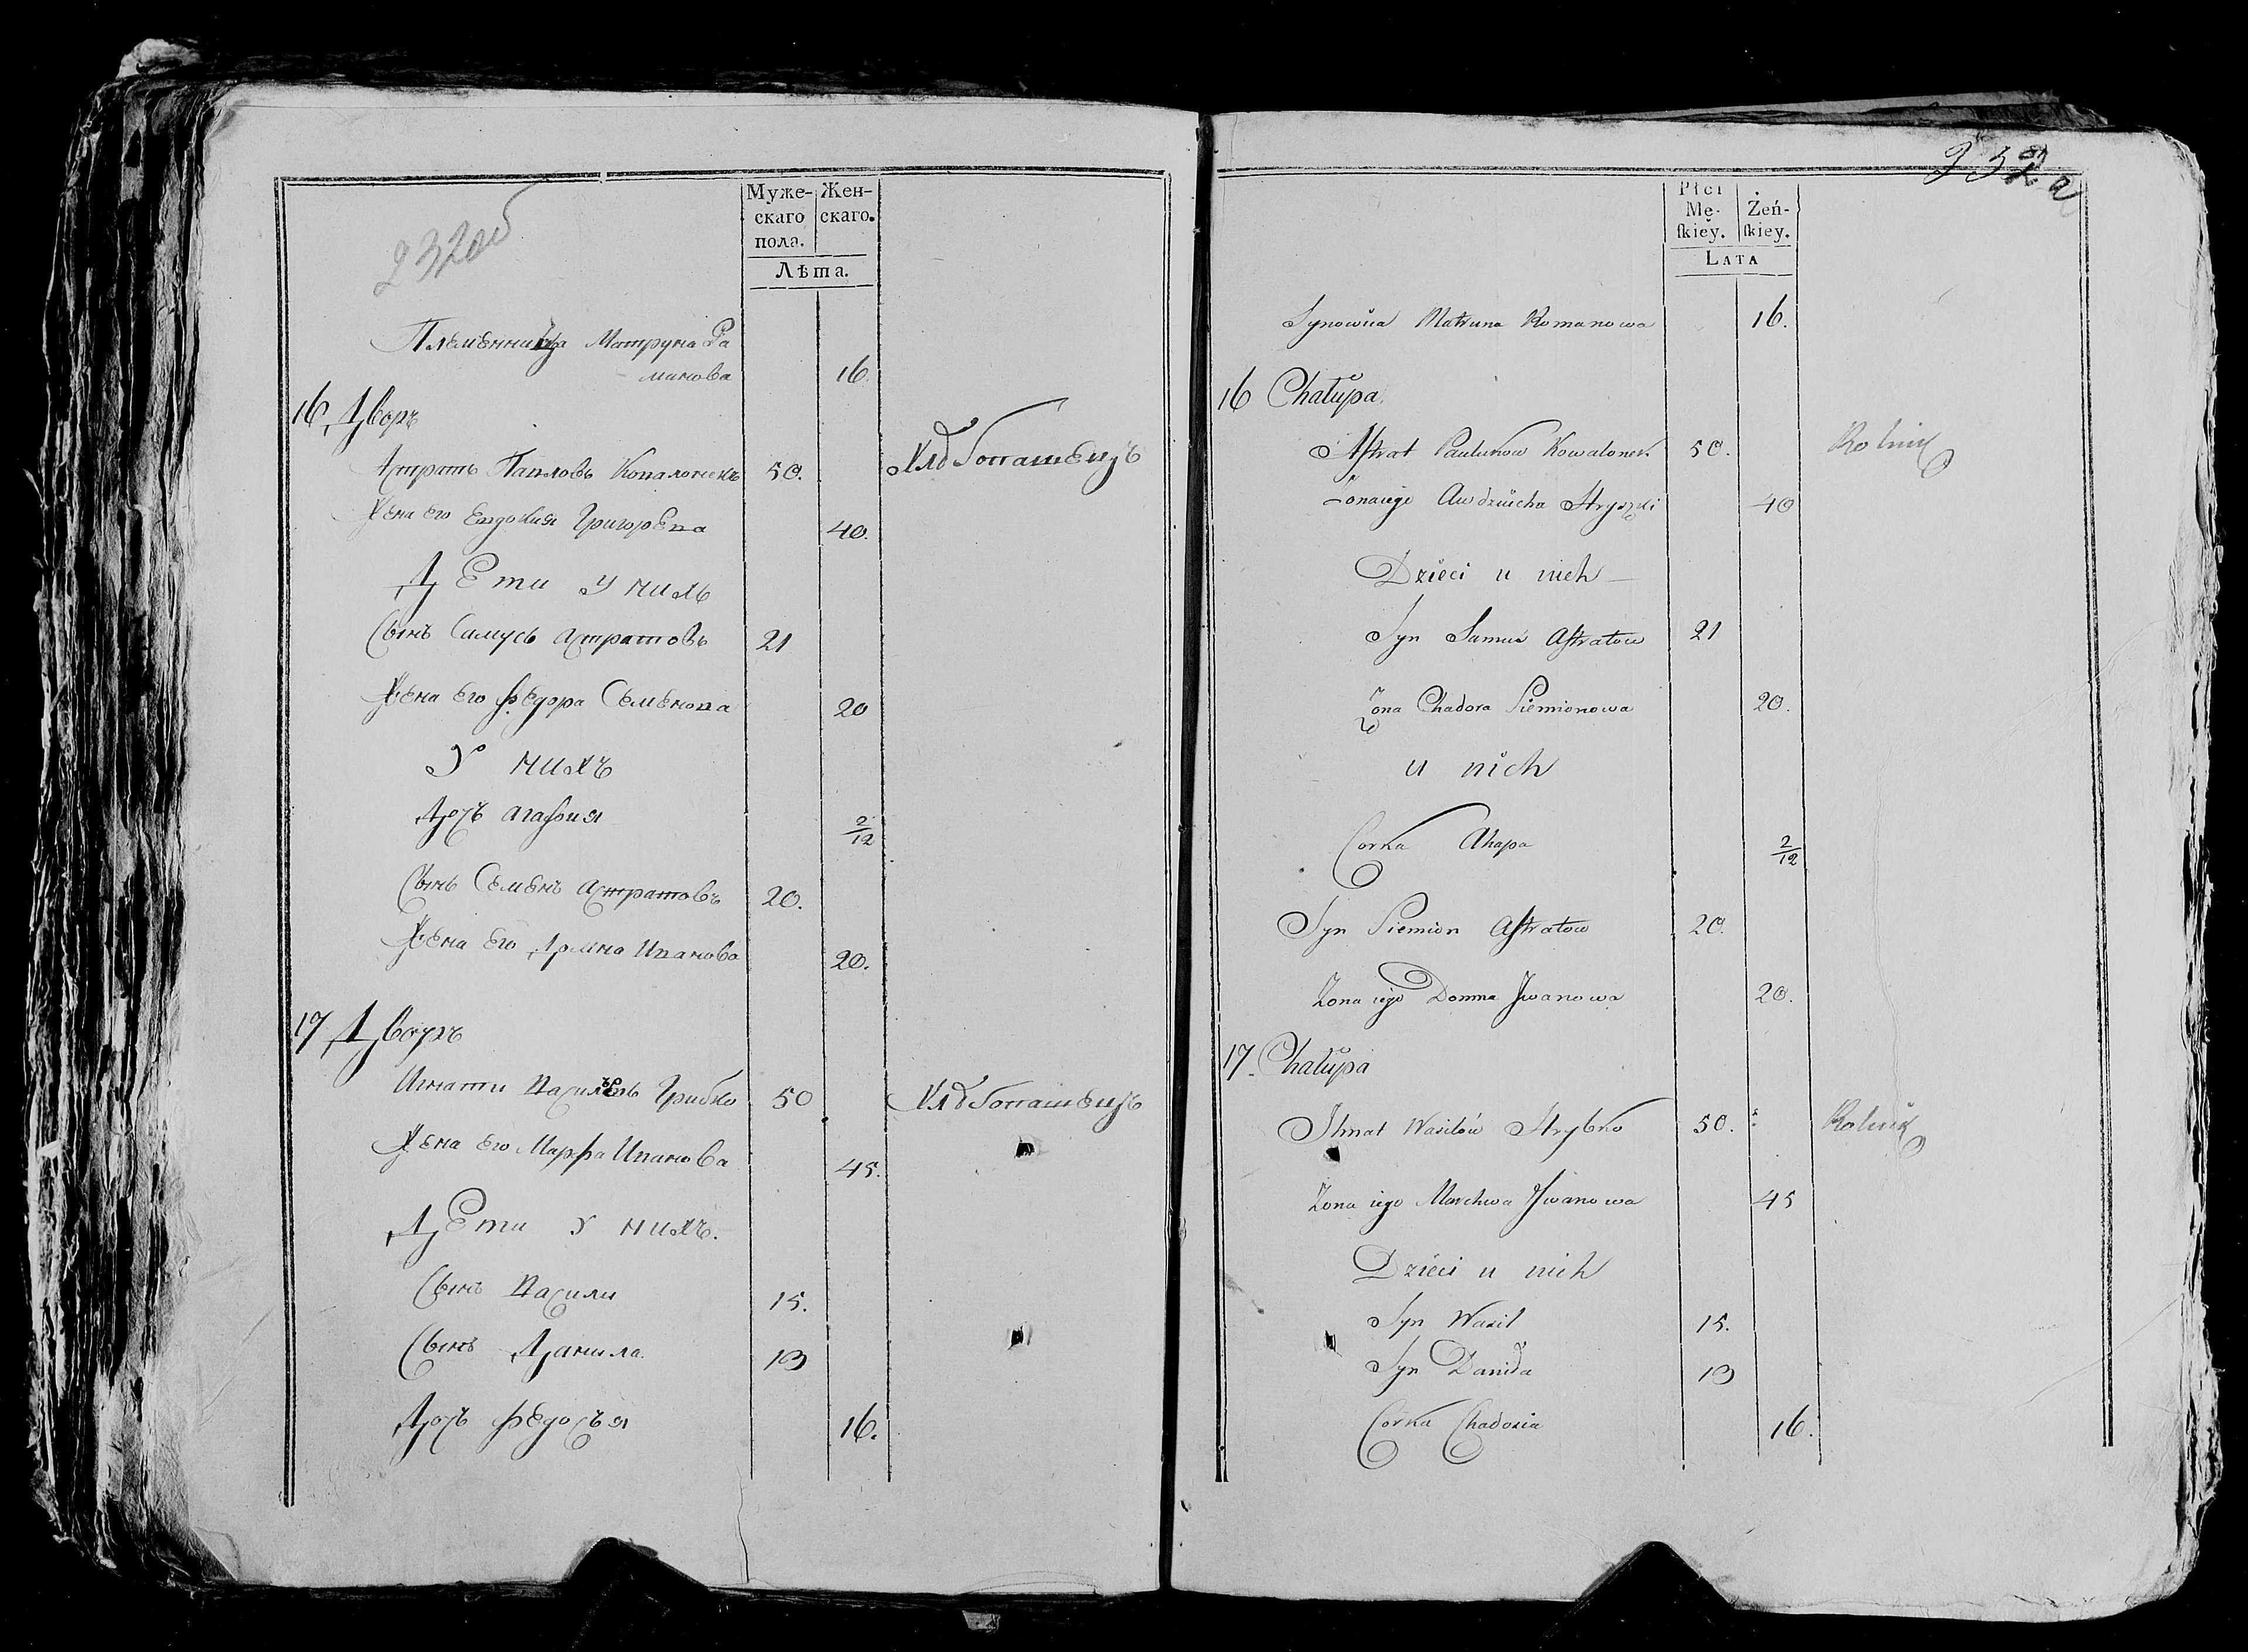 232об
Муже-
скаго
пола.
Жен-
скаго.
Лѣта.
Племенница Матруна Ра
манова 16.
16 Дворъ
Астратъ Павловъ Ковалонекъ 50. Хлебопашецъ
Жена его Евдокия Григорева 40.
Дети у нихъ
Сынъ Самусь Астратовъ 21
Жена его Федора Семенова 20
У нихъ
Дочь Агафия 2/12
Сынъ Семенъ Астратовъ 20.
Жена его Домна Иванова 20.
17 Дворъ
Игнати Васильевъ Грибко 50 Хлебопашецъ
Жена его Марфа Иванова 45.
Дети у нихъ.
Сынъ Васили 15.
Сынъ Данила. 13
Дочь Федосья 16.
Płci
Mę-
ſkiey.
Żeń-
ſkiey.
LATA
Synowica Matruna Romanowa 16.
16 Chałupa
Astrat Pawlukow Kowalonek 50. Rolnik
Zona iego Awdziucha Hryszki 40
Dzieci u nich
Syn Samuś Astratow 21
Zona Chadora Siemionowa 20.
u nich
Corka Ahapa 2/12
Syn Siemion Astratow 20.
Zona iego Domna Jwanowa 20.
17. Chałupa
Ihnat Wasilow Hrybko 50. Rolnik
Zona iego Marchwa Jwanowa 45
Dzieci u nich
Syn Wasil 15.
Syn Daniła 13
Corka Chadosia 16.